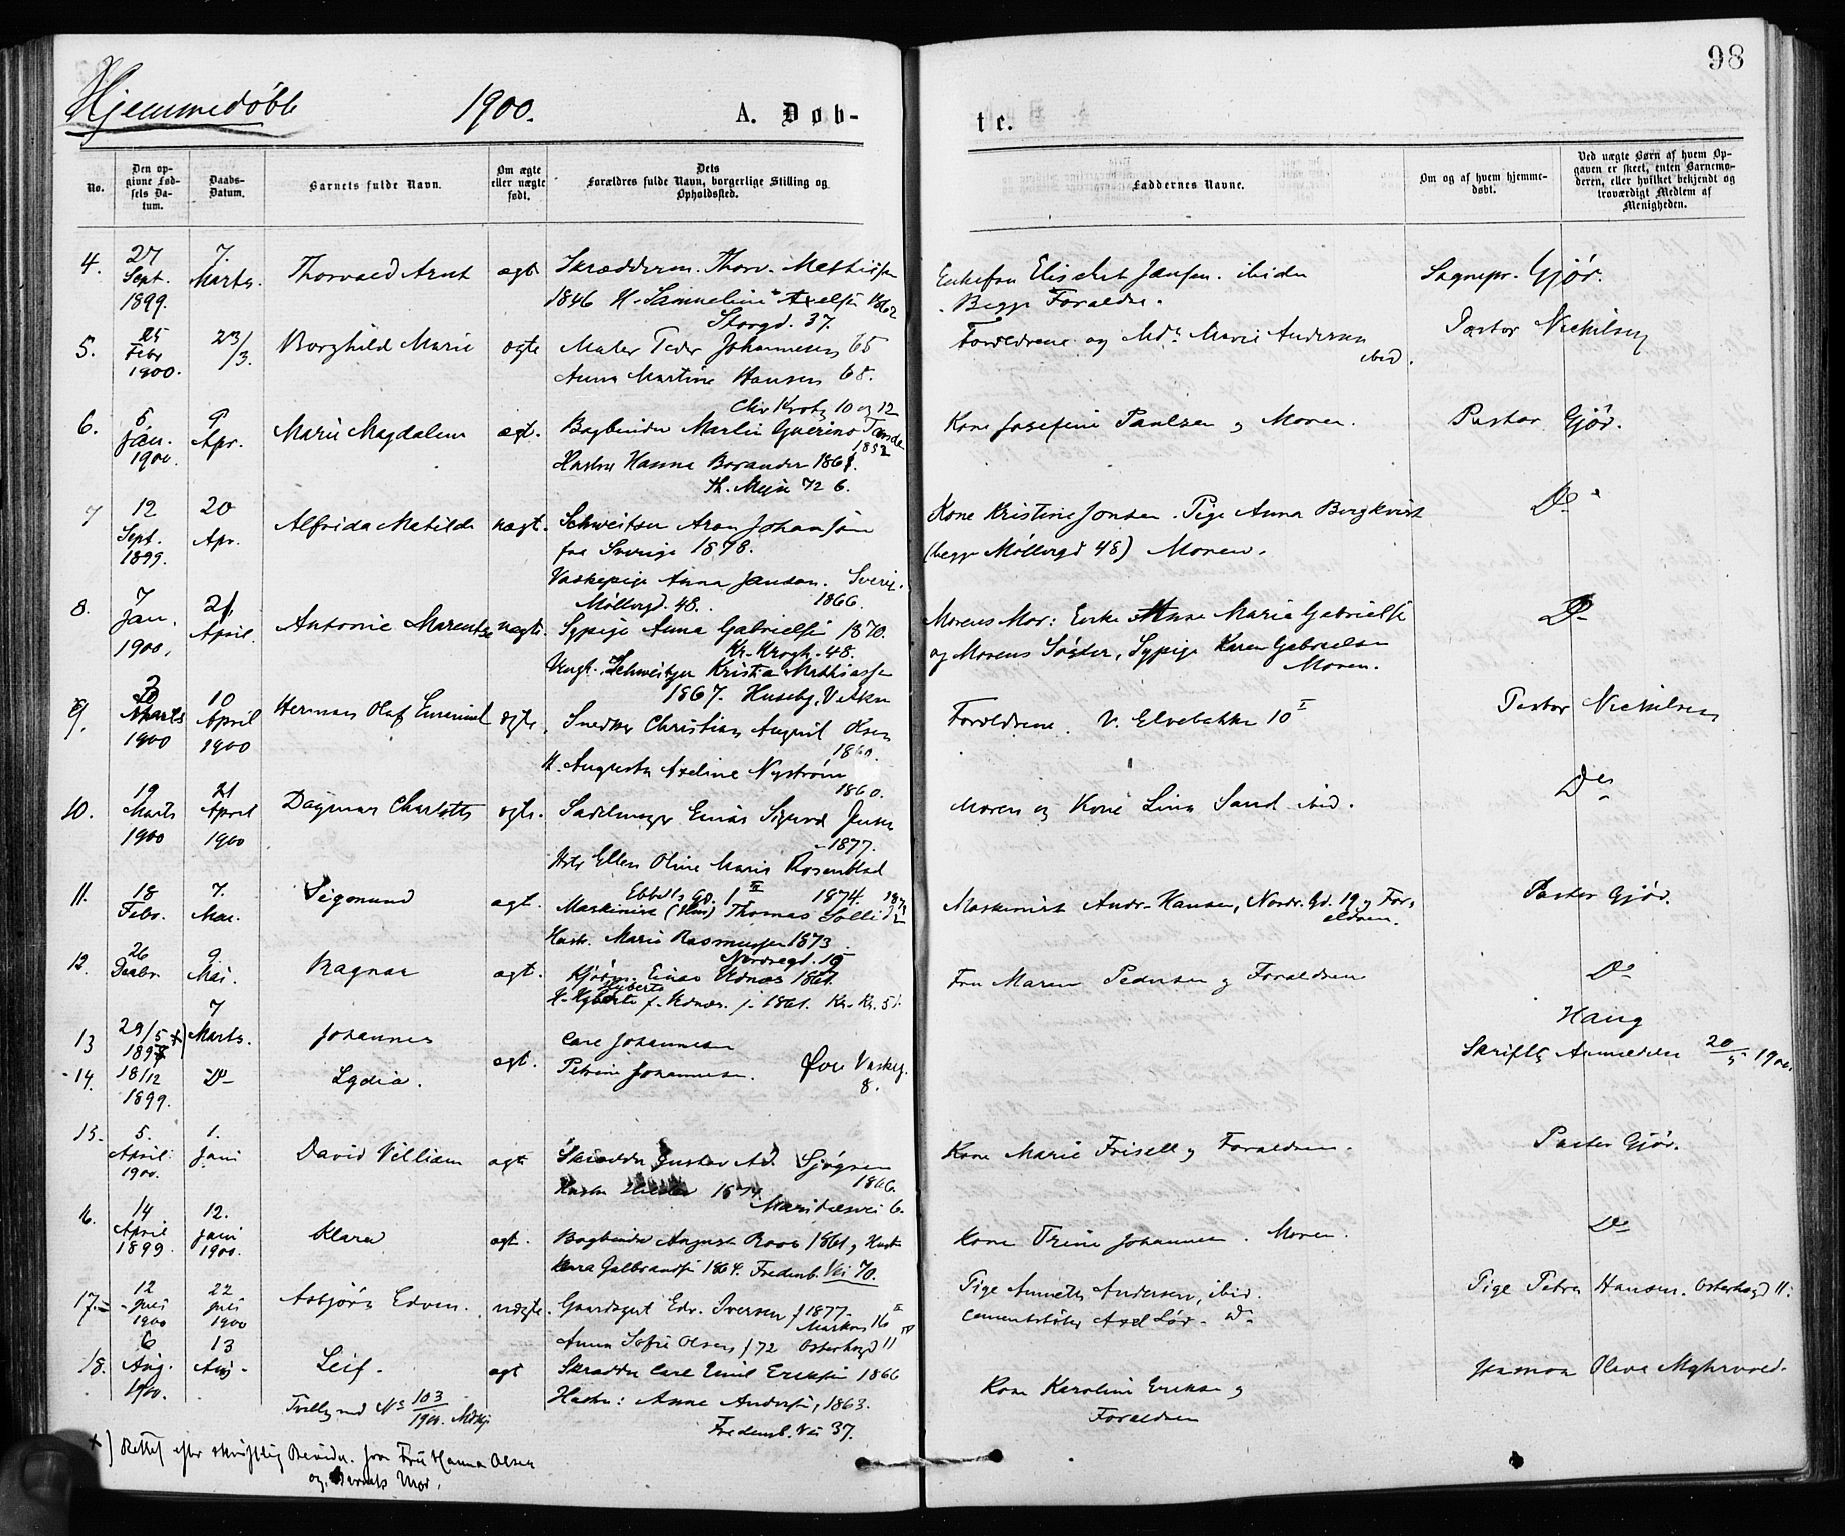 98
Hjemmedøbte 1900. A. Døb- te.
No.
Den opgivne Fødsels Datum.
Daabs-Datum.
Barnets fulde Navn.
Om ægte eller uægte født.
Dets Forældres fulde Navn, borgerlige Stilling og Opholdssted.
Faddernes Navne.
Om og af hvem hjemmedøbt.
Ved uægte Børn af hvem Opgaven er skeet, enten Barnemoderen, eller hvilket bekjendt og troværdigt Medlem af Menigheden.
4. 27 Sept. 1899. 7. Marts. Thorvald Arnt ægte Skrædderm. Thorv. Mathisen
1846 H. Axelsen 1862
Storgd. 37.
Enkefru Elisabet Jansen. ibidem
Begge Forældre.
Sognepr. Gjør.
5. 25 Febr 1900. 23/3. Borghild Marie ægte Maler Peder Johannesen 65
Anna Martine Hansen 68.
Chr. Krohg 10 og 12
Forældrene og Md. Marie Andersen
ibid.
Pastor Nickelsen
6. 5 Jan. 1900. 9 Apr. Marie Magdalene ægt. Bogbinder Martin Guerino
1852
Hustru Hanna 1861.
Th. Meyer 72 6.
Kone Josefine Paulsen og Moren.
Pastor Gjør.
7 12 Sept. 1899. 20 Apr. Alfrida Matilde uægt. Schweitser Aron Johansson
fra Sverige 1878.
Vaskepige Anna Janson. Sverig.
Møllergd. 48. 1866.
Kone Kristine Jonsen. Pige Anna Bergkvist
(begge Møllergd 48) Moren.
Do
8. 7 Jan. 1900. 21. April. Antonie Marentse uægte. Sypige Anna Gabrielsen 1870.
Kr. Krogh. 48.
Ungk. Schweitzer Kristian Mathiassen
1867. Huseby, V. Aker
Morens Mor: Enke Anne Maria Gabrielsen
og Morens Søster, Sypige Karen Gabrielsen
Moren.
Do
9. 2 Marts 1900 10 April 1900 Herman Olaf Emanuel ægte. Snedker Christian August Olsen
1860.
H. Augusta Axeline Nystrøm
1860.
Forældrene. V. Elvebakke 10 I
Pastor Nickelsen
10. 19 Marts 1900 21 April 1900 Dagmar Charlotte ægte. Sadelmager Einar Sigurd Jensen
1877.
Hstr Ellen Oline Marie Rosenblad
Ebbells gd. 1 III 1874.
Moren og Kone Lina Sand ibid.
Do
11. 18 Febr. 7. Mai. Sigmund ægt. Maskinist Thomas Sollid
Hustr. Marie Rasmussen 1873.
Nordregd. 15
Maskinist Andr. Hansen, Nordr. Gd. 19 og Forældren.
Pastor Gjør.
12. 26 Decbr. 9. Mai. Ragnar ægt. Kjøbm. Einar Udnæs 1861.
H. Hjberte f. Udnæs. 1861. Kr. Kr. 51.
Fru Maren Pedersen og Forældrene
Do
13 29/5 x) 7 Marts. Johannes Carl Johannesen
Haug
14. 18/12 1899. Do Lydia. ægt. Petrine Johannesen. Øvre Vaskeg.
8.
Skriftlig Anmeldelse 20/5 1900.
15. 5. April 1900. 1. Juni David William ægt Skrædder Gustav Ad. Sjøgren
1866.
Hustru 1874.
Maridalsvei 6.
Kone Marie Frisell og Forældren.
Pastor Gjør.
16. 14 April 1899. 12. Juni 1900. Klara ægt. Bogbinder August Roos 1861 og Hustr
Gulbrandsen 1864. Fredensb. Vei 70.
Kone Trine Johannesen. Moren.
Do
17. 12 Juli 1900 22 Juli 1900 Asbjørn Edvin. uægte. Gaardsgut Edv. Iversen f 1877.
Markvn 16
Anna Sofie Olsen f 72 Osterhgd 11
Pige Anneth Andersen, ibid.
Cementstøber Axel Lør. Do
Pige Petra Hansen. Osterhgd 11.
18. 6 Aug. 1900. 13 Aug. Leif. ægt Skrædder Carl Emil Eriksen 1866
Hustru: Anne Andersen, 1863.
Fredensb. Vei 37.
Kone Karoline Eriksen og
Forældren
Jormoa Olava Myhrvold.
Tvilling med No 103/1900.
x) Rettet efter skriftlig Bevidn. fra Fru Hanna Olsen
og Barnets Mor.